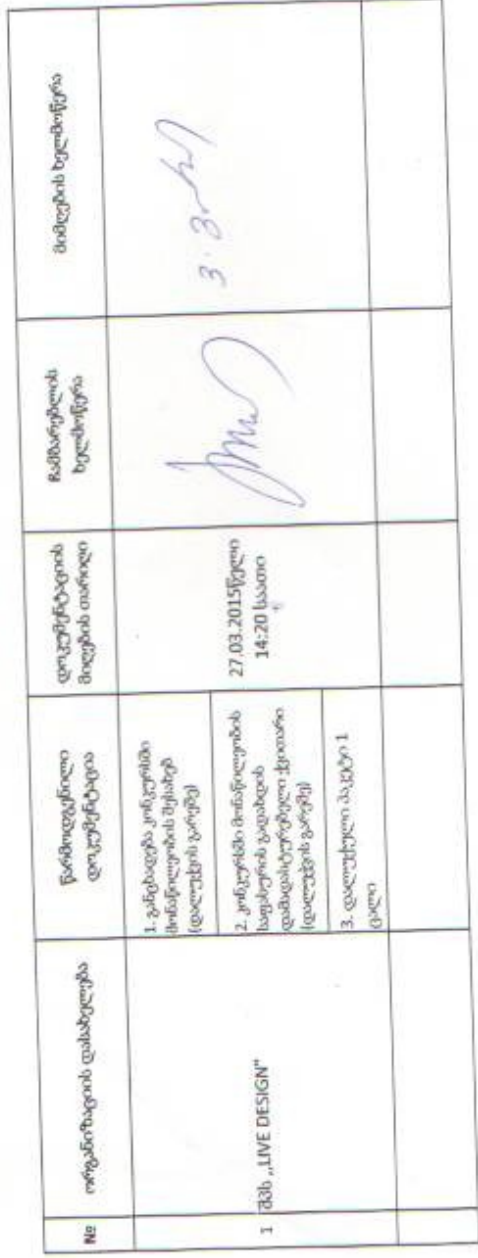 №
ორგანიზაციის დასახელება
წარმოდგენილი
დოკუმენტაცია
დოკუმენტაციის
მიღების თარიღი
ჩამბარებლის
ხელმოწერა
მიმღების ხელმოწერა
1
შპს „LIVE DESIGN"
1. განცხადება კონკურსში
მონაწილეობის შესახებ
(დალუქვის გარეშე)
2. კონკურსში მონაწილეობის
საფასურის გადახდის
დამადასტურებელი ქვითარი
(დალუქვის გარეშე)
3. დალუქული პაკეტი 1
ცალი
27.03.2015წელი
14:20 საათი